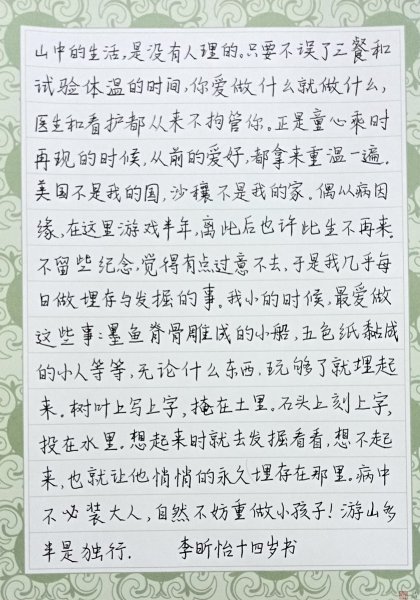 山中的生活,是没有人理的。只要不误了三餐和
试验体温的时间,你爱做什么就做什么,
医生和看护都从来不拘管你。正是童心乘时
再现的时候,从前的爱好,都拿来重温一遍。
美国不是我的国,沙穰不是我的家。偶以病因
缘,在这里游戏半年,离此后也许此生不再来.
不留些纪念,觉得有点过意不去,于是我几乎每
日做埋存与发掘的事。我小的时候,最爱做
这些事:墨鱼脊骨雕成的小船,五色纸黏成
的小人等等,无论什么东西,玩够了就埋起
来。树叶上写上字,掩在土里。石头上刻上字,
投在水里。想起来时就去发掘看看,想不起
来,也就让他悄悄的永久埋存在那里。病中
不必装大人,自然不妨重做小孩子!游山多
半是独行. 李昕怡十四岁书